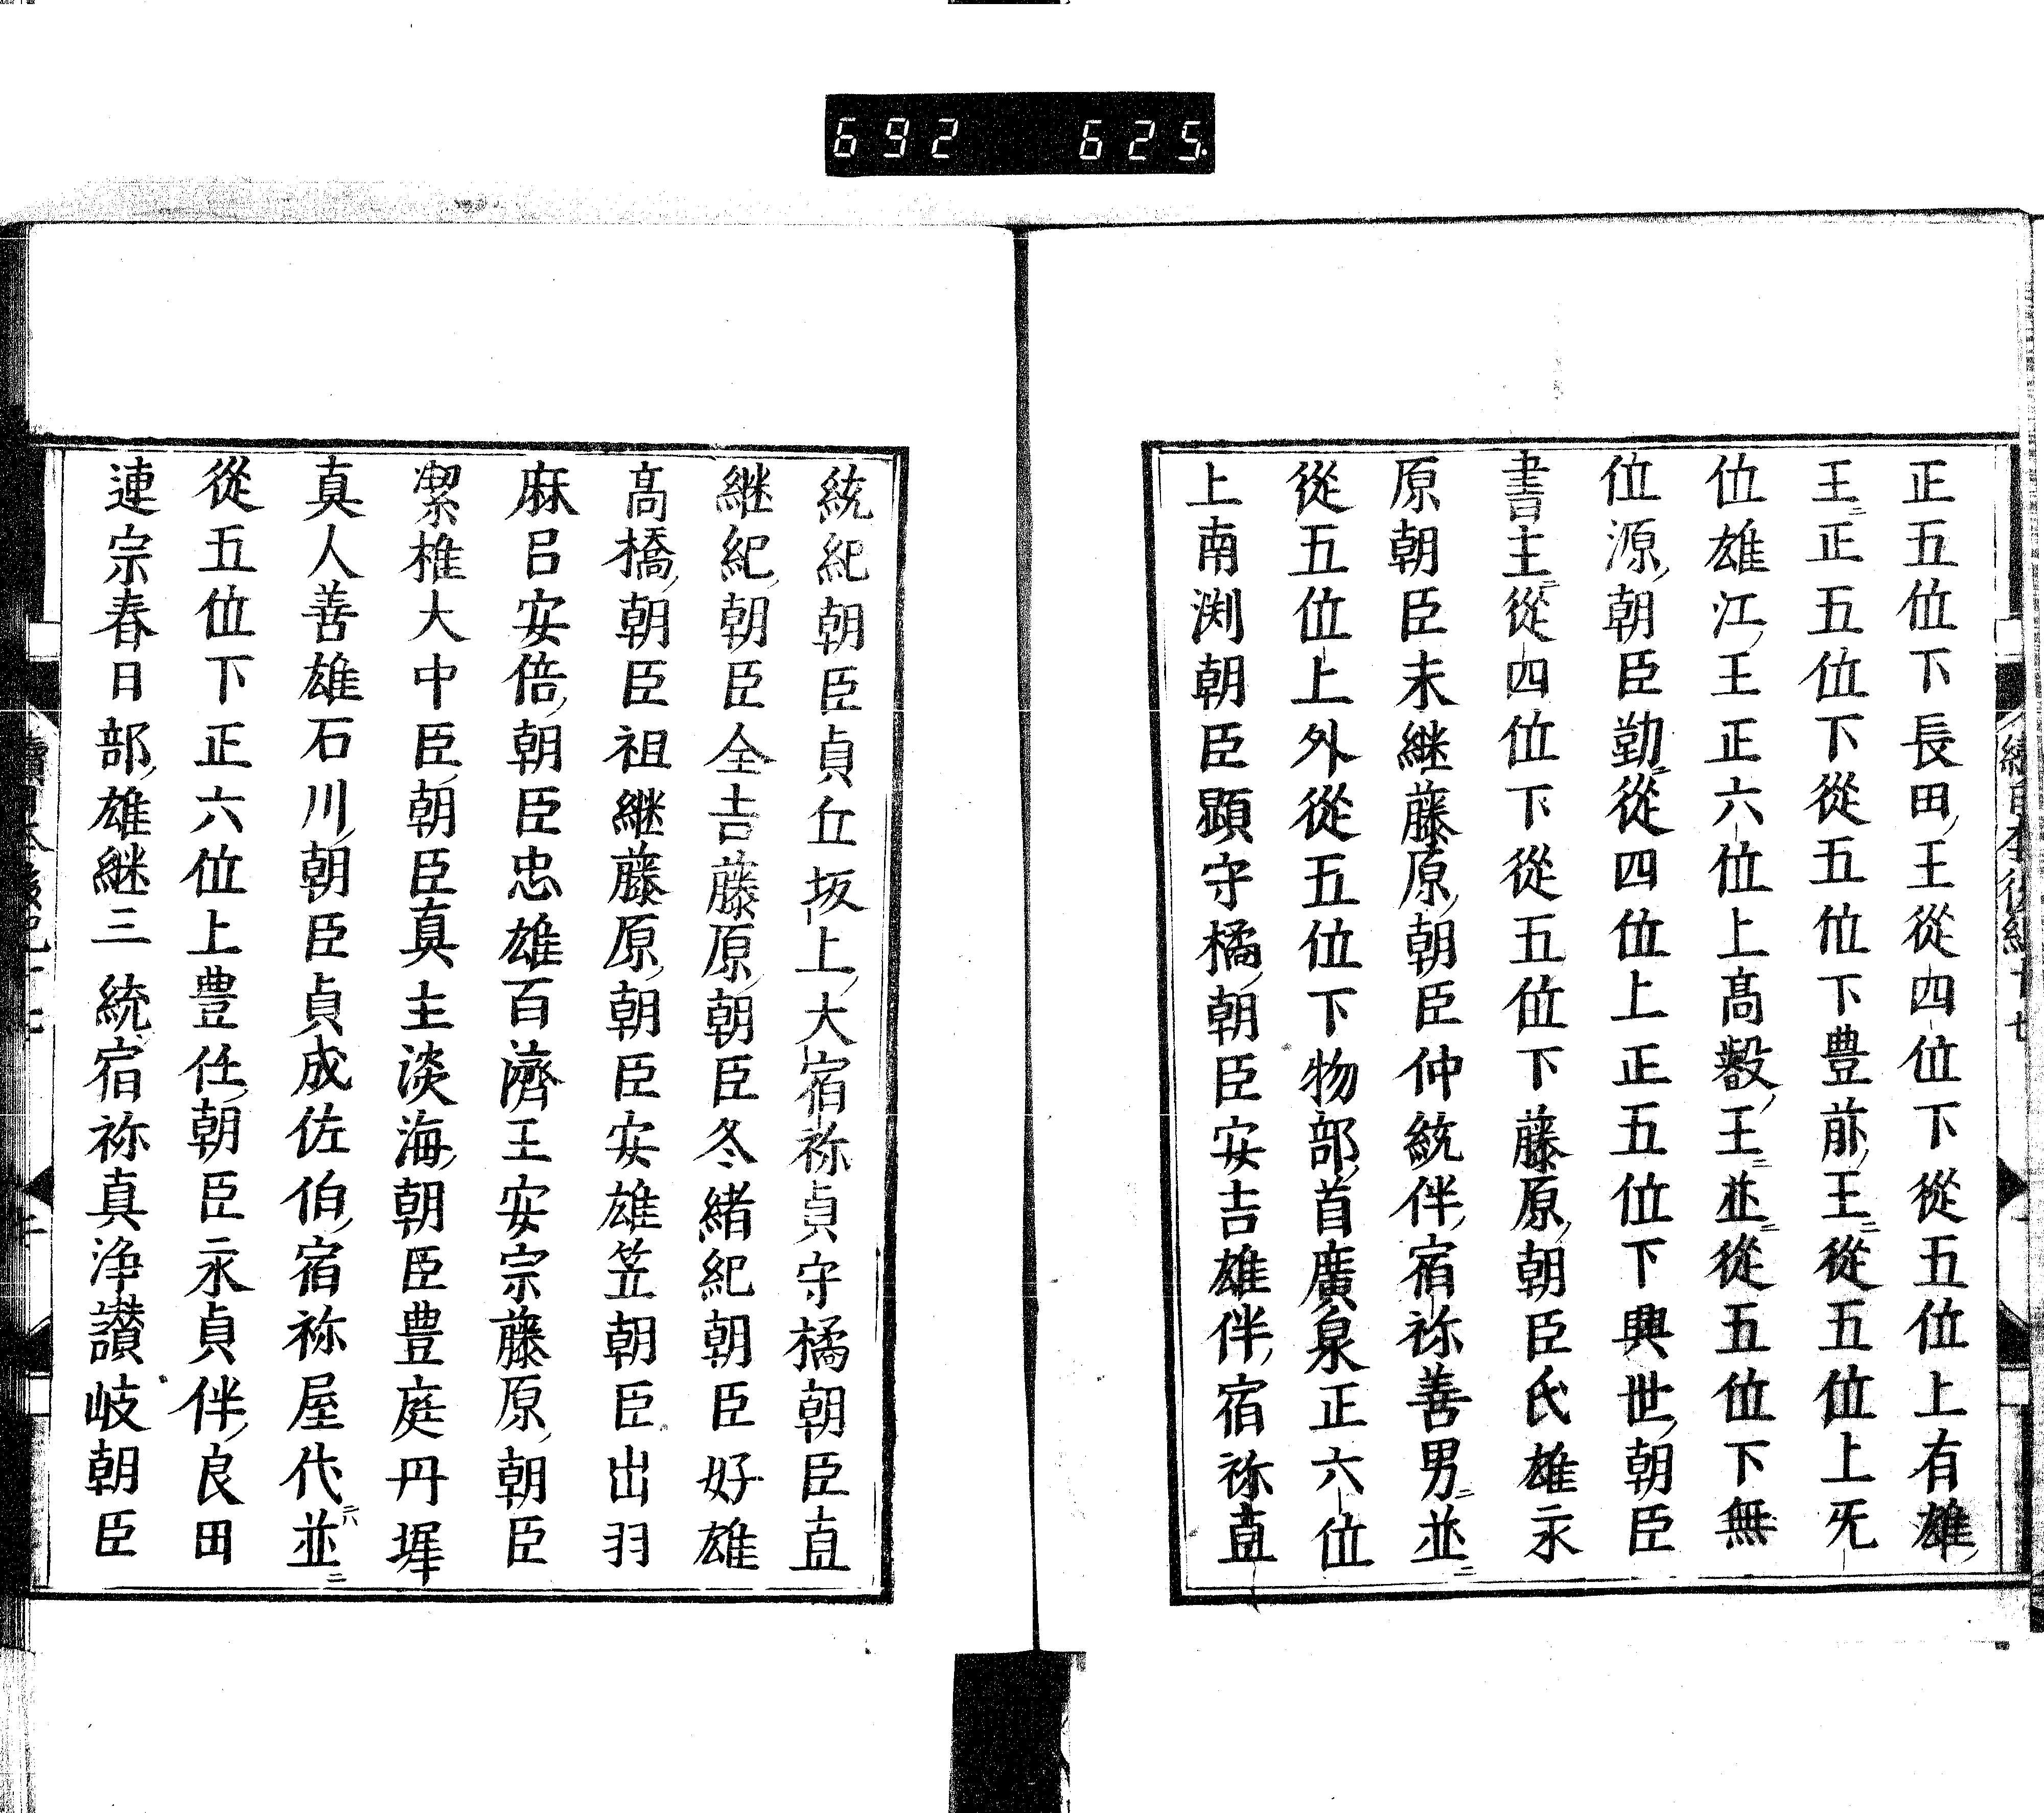 692 625
正五位下長田王從四位下從五位上有雄
王正五位下從五位下豊前王從五位上旡
位雄江王正六位上髙㲄王並從五位下無
位源朝臣勤從四位上正五位下興世朝臣
書主從四位下從五位下藤原朝臣氏雄永
原朝臣末継藤原朝臣仲統伴宿祢善男並
從五位上外從五位下物部首廣泉正六位
上南渕朝臣顕守橘朝臣安吉雄伴宿祢直
統紀朝臣貞丘坂上大宿祢貞守橘朝臣直
継紀朝臣全吉藤原朝臣冬緒紀朝臣好雄
髙橋朝臣祖継藤原朝臣安雄笠朝臣出羽
麻呂安倍朝臣忠雄百濟王安宗藤原朝臣
潔椎大中臣朝臣真主淡海朝臣豊庭丹墀
真人善雄石川朝臣貞成佐伯宿祢屋代並
從五位下正六位上豊任朝臣永貞伴良田
連宗春日部雄継三統宿祢真浄讃岐朝臣